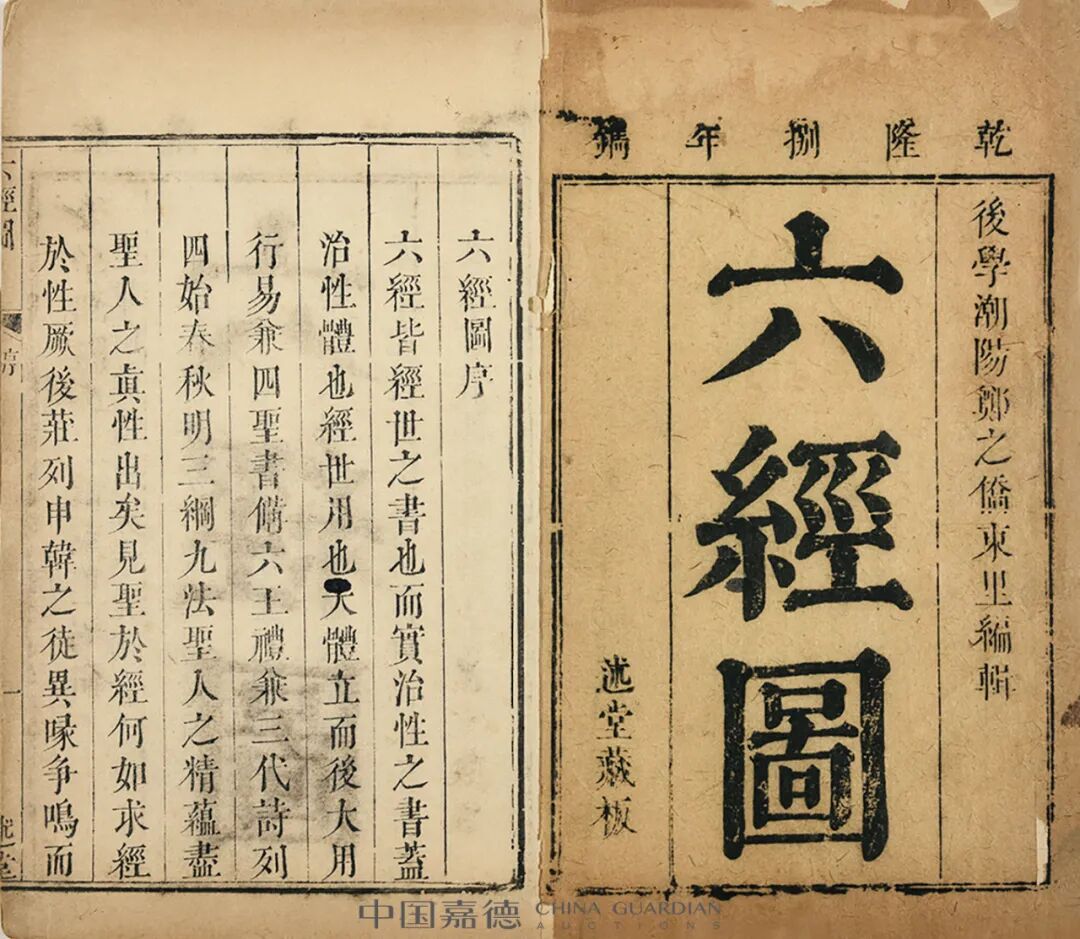 乾隆捌年鐫
後學潮陽鄭之僑東里編輯
六經圖
述堂藏板
六經圖序
六經皆經世之書也而實治性之書蓋
治性體也經世用也大體立而後大用
行易兼四聖書備六王禮兼三代詩列
四始春秋明三綱九法聖人之精蘊盡
聖人之真性出矣見聖於經何如求經
於性厥後莊列申韓之徒異喙争鳴而
六經圖
序
一
述堂
中国嘉德 CHINA GUARDIAN
AUCTIONS